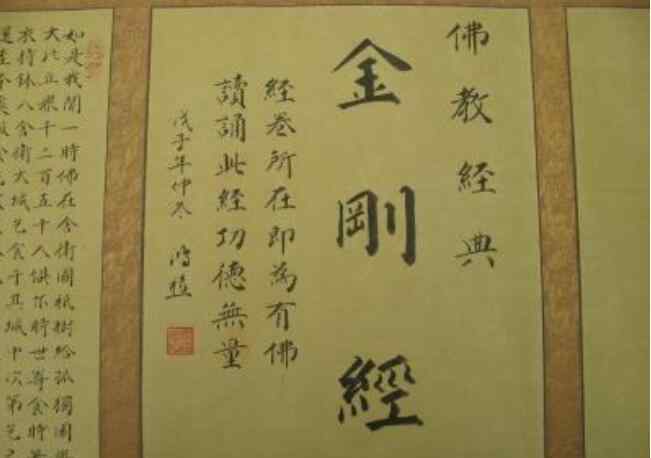 佛教經典
金剛經
經卷所在即為有佛
讀誦此經功德無量
戊子年仲冬
如是我聞一時佛在舍衛國祇樹給孤獨園
大比丘眾千二百五十人俱尒時世尊食時著
衣持鉢入舍衛大城乞食于其城中次第乞已